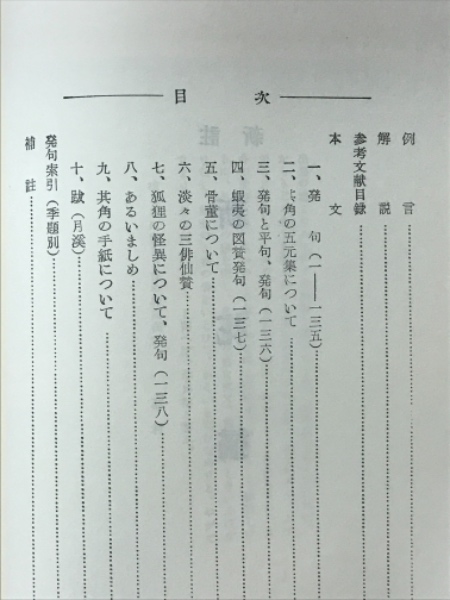 目次
例言
解説
参考文献目録
本文
一、発句（一――一三五）
二、其角の五元集について
三、発句と平句、発句（一三六）
四、蝦夷の図賛発句（一三七）
五、骨董について
六、淡々の三俳仙賛
七、狐狸の怪異について、発句（一三八）
八、あるいましめ
九、其角の手紙について
十、跋（月溪）
発句索引（季題別）
補註